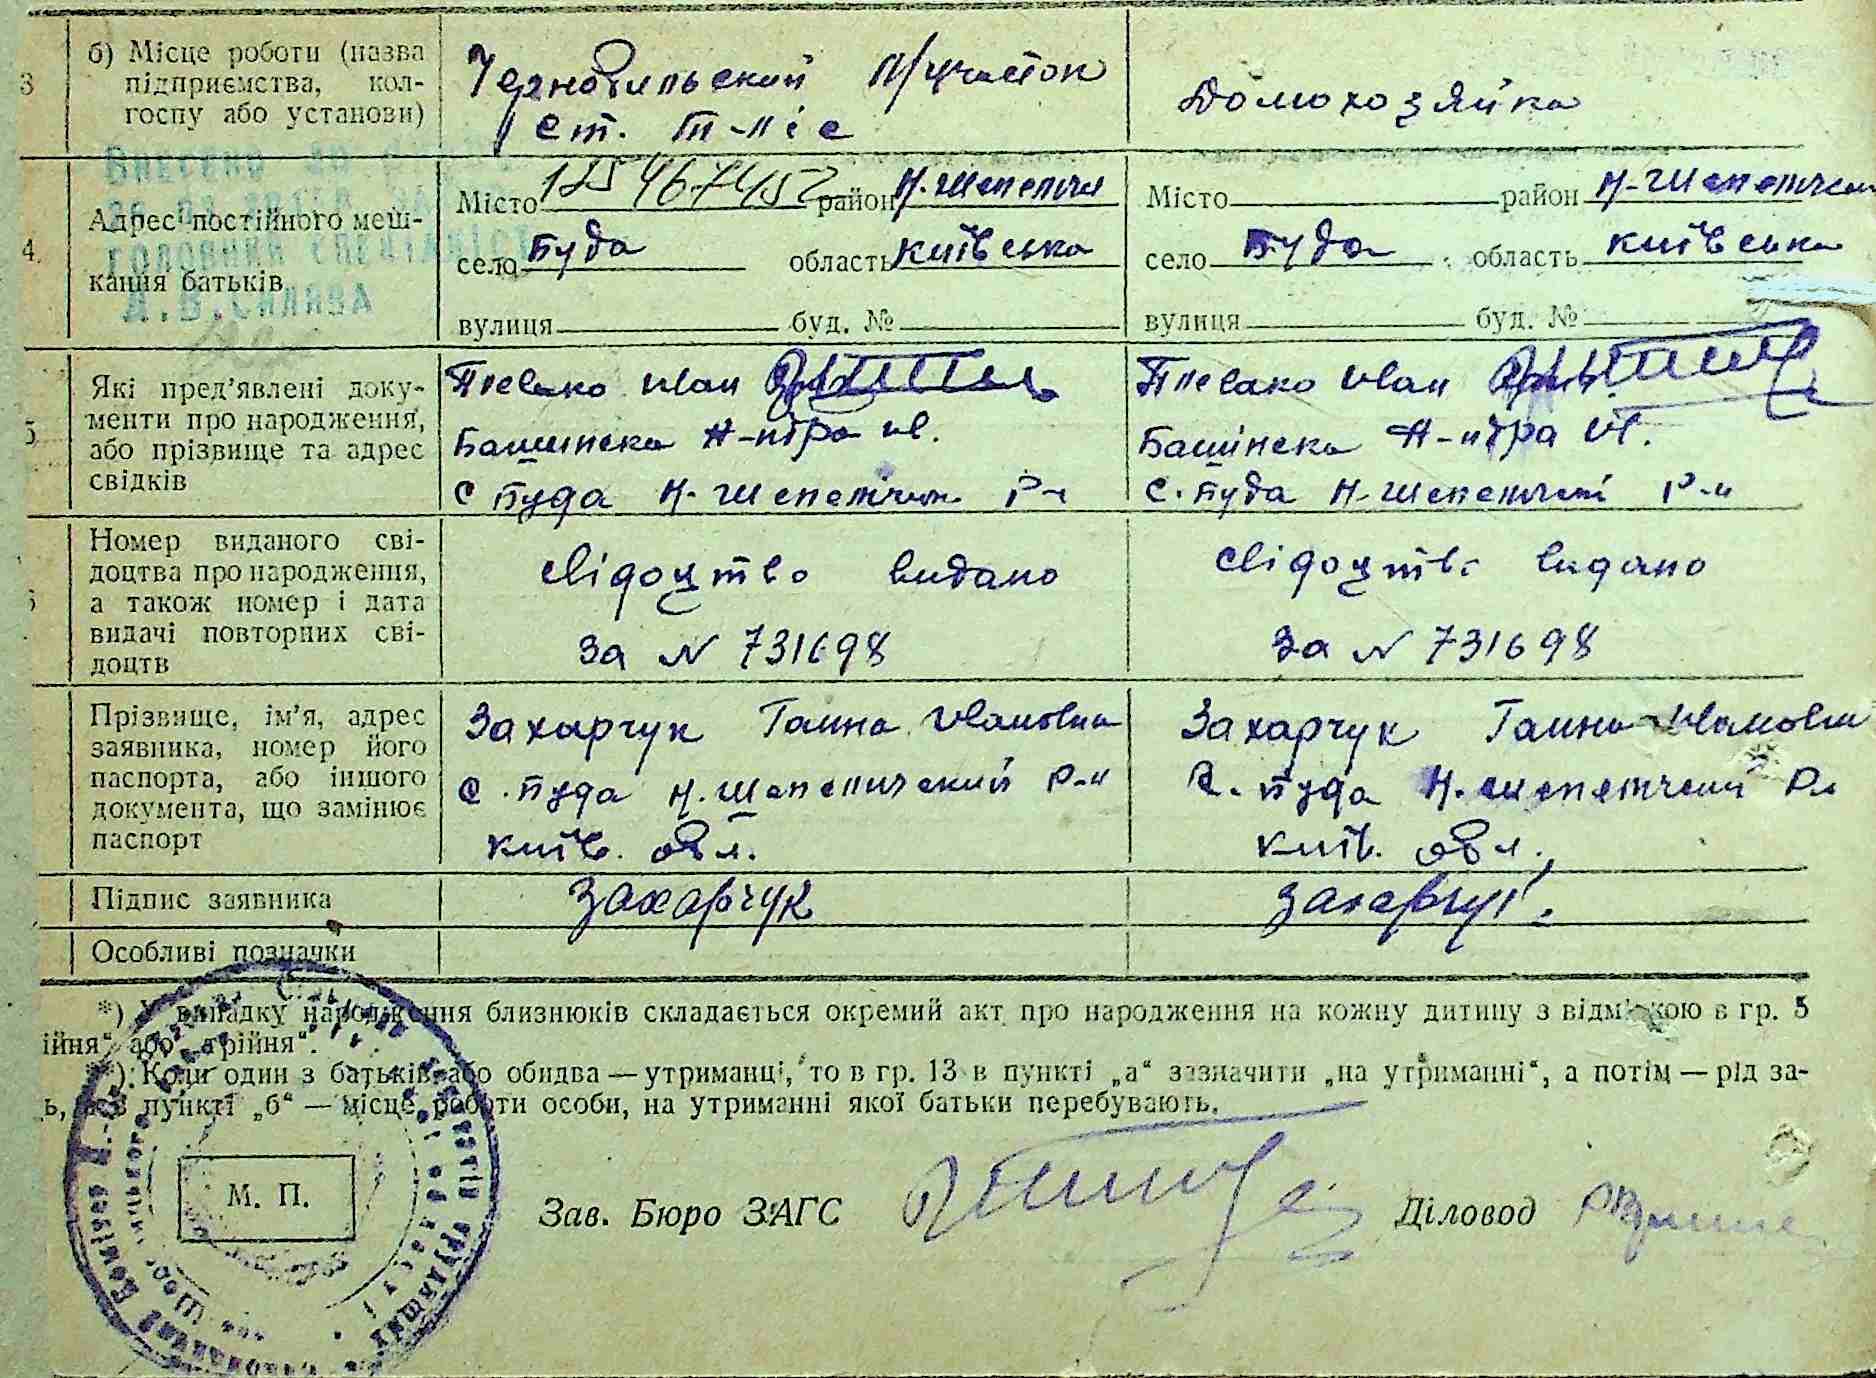 3
б) Місце роботи (назва
підприємства, кол-
госпу або установи)
Чернобильский
ст.
Домохозяйка
4.
Адрес постійного меш-
кання батьків
Внесено до
головний спеціаліст
Місто 1254967452 район Н-Шепелич
село Буда область Київська
вулиця буд. №
Місто район Н-Шепелич
село Буда область Київська
вулиця буд. №
5
Які пред'явлені доку-
менти про народження,
або прізвище та адрес
свідків
Плевако Иван
с Буда Н-Шепелич Р-н
Плевако Иван
с. Буда Н-Шепелич Р-н
Номер виданого сві-
доцтва про народження,
а також номер і дата
видачі повторних сві-
доцтв
Свідоцтво видано
за N 731698
Свідоцтво видано
за N 731698
Прізвище, ім'я, адрес
заявника, номер його
паспорта, або іншого
документа, що замінює
паспорт
Захарчук Ганна Ивановна
с. Буда Н. Шепеличский Р-н
Київ. обл.
Захарчук Ганна
с. Буда Р-н
Київ. обл.
Підпис заявника
Захарчук
Захарчук
Особливі позначки
*) У випадку народження близнюків складається окремий акт про народження на кожну дитину з відміткою в гр. 5
ійня" або „трійня".
*) Коли один з батьків або обидва — утриманці, то в гр. 13 в пункті „а" зазначити „на утриманні", а потім — рід за-
ь, а в пункті „б" — місце роботи особи, на утриманні якої батьки перебувають.
М. П.
Зав. Бюро ЗАГС
Діловод